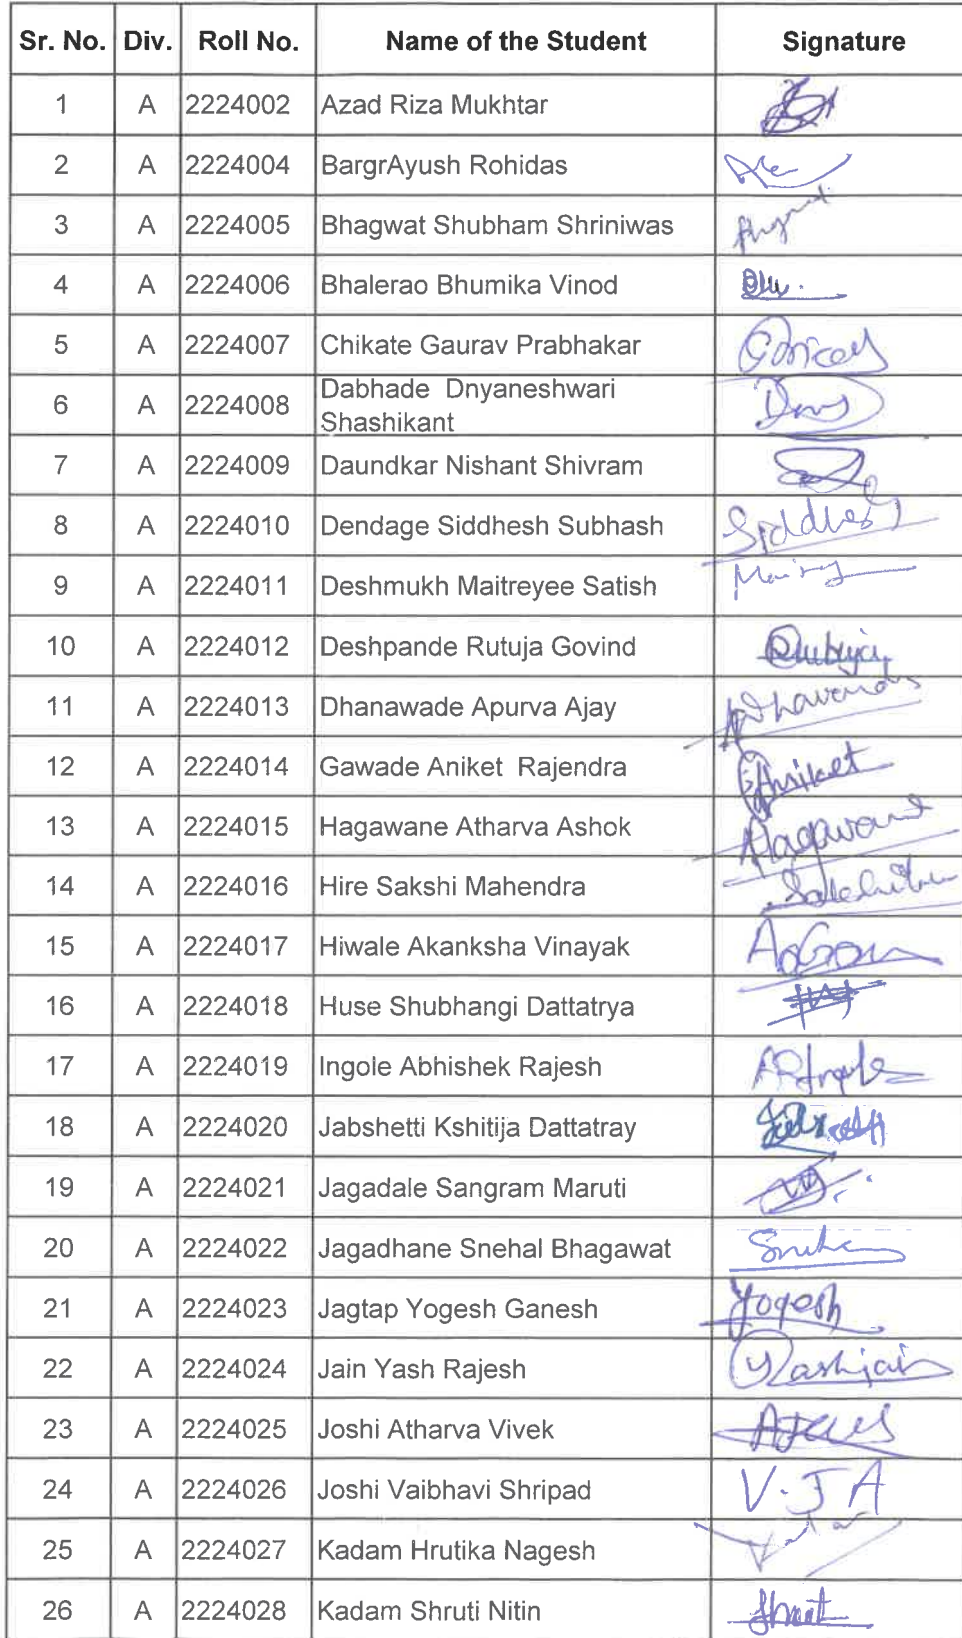 Sr. No. Div. Roll No. Name of the Student Signature
1 A 2224002 Azad Riza Mukhtar
2 A 2224004 BargrAyush Rohidas
3 A 2224005 Bhagwat Shubham Shriniwas
4 A 2224006 Bhalerao Bhumika Vinod
5 A 2224007 Chikate Gaurav Prabhakar
6 A 2224008 Dabhade Dnyaneshwari
Shashikant
7 A 2224009 Daundkar Nishant Shivram
8 A 2224010 Dendage Siddhesh Subhash Siddhesh
9 A 2224011 Deshmukh Maitreyee Satish
10 A 2224012 Deshpande Rutuja Govind
11 A 2224013 Dhanawade Apurva Ajay
12 A 2224014 Gawade Aniket Rajendra Aniket
13 A 2224015 Hagawane Atharva Ashok
14 A 2224016 Hire Sakshi Mahendra
15 A 2224017 Hiwale Akanksha Vinayak
16 A 2224018 Huse Shubhangi Dattatrya
17 A 2224019 Ingole Abhishek Rajesh
18 A 2224020 Jabshetti Kshitija Dattatray
19 A 2224021 Jagadale Sangram Maruti
20 A 2224022 Jagadhane Snehal Bhagawat
21 A 2224023 Jagtap Yogesh Ganesh Yogesh
22 A 2224024 Jain Yash Rajesh Yashjain
23 A 2224025 Joshi Atharva Vivek
24 A 2224026 Joshi Vaibhavi Shripad V.JA
25 A 2224027 Kadam Hrutika Nagesh
26 A 2224028 Kadam Shruti Nitin